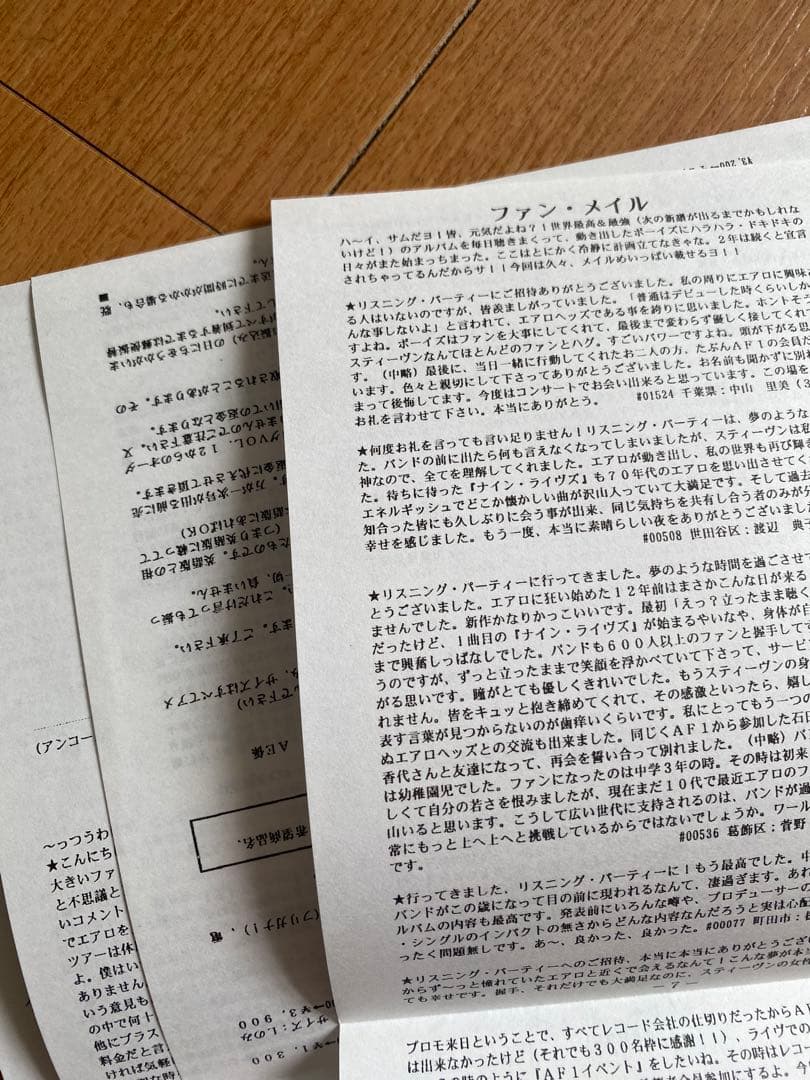 ファン・メイル
ハ〜イ、サムだヨ!皆、元気だよね?!世界最高&最強(次の新譜が出るまでかもしれな
いけど!)のアルバムを毎日聴きまくって、動き出したボーイズにハラハラ・ドキドキの
日々がまた始まっちまった。ここはとにかく冷静に計画立てなきゃな。2年は続くと宣言
されちゃってるんだからサ!!今回は久々、メイルめいっぱい載せるヨ!!
★リスニング・パーティーにご招待ありがとうございました。私の周りにエアロに興味
る人はいないのですが、皆羨ましがっていました。「普通はデビューした時くらいしか
んな事しないよ」と言われて、エアロヘッズである事を誇りに思いました。ホントそう
すよね。ボーイズはファンを大事にしてくれて、最後まで変わらず優しく接してくれて
スティーヴンなんてほとんどのファンとハグ。すごいパワーですよね。頭が下がる思
す。(中略)最後に、当日一緒に行動してくれたお二人の方、たぶんAF1の会員だ
います。色々と親切にして下さってありがとうございました。お名前も聞かずに別れ
まって後悔してます。今度はコンサートでお会い出来ると思っています。この場を
お礼を言わせて下さい。本当にありがとう。 #01524 千葉県:中山 里美(3
★何度お礼を言っても言い足りません!リスニング・パーティーは、夢のような
た。バンドの前に出たら何も言えなくなってしまいましたが、スティーヴンは私
神なので、全てを理解してくれました。エアロが動き出し、私の世界も再び輝き
た。待ちに待った『ナイン・ライヴズ』も70年代のエアロを思い出させてく
エネルギッシュでどこか懐かしい曲が沢山入っていて大満足です。そして過去
知合った皆にも久しぶりに会う事が出来、同じ気持ちを共有し合う者のみが分
幸せを感じました。もう一度、本当に素晴らしい夜をありがとうございまし
#00508 世田谷区:渡辺 典子
★リスニング・パーティーに行ってきました。夢のような時間を過ごさせて
とうございました。エアロに狂い始めた12年前はまさかこんな日が来る
ませんでした。新作かなりかっこいいです。最初「えっ?立ったまま聴く
だったけど、1曲目の『ナイン・ライヴズ』が始まるやいなや、身体が自
まで興奮しっぱなしでした。バンドも600人以上のファンと握手して
うのですが、ずっと立ったままで笑顔を浮かべていて下さって、サービ
がる思いです。瞳がとても優しくきれいでした。もうスティーヴンの身
れません。皆をキュッと抱き締めてくれて、その感激といったら、嬉し
表す言葉が見つからないのが歯痒いくらいです。私にとってもう一つの
ぬエアロヘッズとの交流も出来ました。同じくAF1から参加した石田
香代さんと友達になって、再会を誓い合って別れました。(中略)バン
は幼稚園児でした。ファンになったのは中学3年の時。その時は初来
しくて自分の若さを恨みましたが、現在まだ10代で最近エアロのフ
山いると思います。こうして広い世代に支持されるのは、バンドが過
常にもっと上へ上へと挑戦しているからではないでしょうか。ワール
です。 #00536 葛飾区:菅野
★行ってきました、リスニング・パーティーに!もう最高でした。中
バンドがこの歳になって目の前に現われるなんて、凄過ぎます。あれ
ルバムの内容も最高です。発表前にいろんな噂や、プロデューサーの
・シングルのインパクトの無さからどんな内容なんだろうと実は心配
ったく問題無しです。あ〜、良かった、良かった。#00077 町田市:
★リスニング・パーティーへのご招待、本当に本当にありがとうござい
からずーっと憧れていたエアロと近くで会えるなんて!こんな夢が本当
ても幸せです。握手、それだけでも大満足なのに、スティーヴンの女性
― 7 ―
プロモ来日ということで、すべてレコード会社の仕切りだったからA
は出来なかったけど(それでも300名枠に感謝!!)、ライヴでの
の時のように『AF1イベント』をしたいね。その時はレコー
(アンコー
〜っつうわ
★こんにち
大きいファ
と不思議と
いコメント
でエアロを
ツアーは休
よ。僕はい
ありません
という意見も
の中で何十
他にプラス
料金だと言
ければ気軽
希望商品名、
AE係
(フリガナ)、電
サイズ:Lのみ
00→¥3,900
→¥1,300
んで下さい)
み、サイズはすべてアメ
ます。ご了承下さい。
これだけ言っても振っ
一切、負いません。
たものです。英語版との相
(つまり英語版に載って
英語版にあればOK)
す。万が一次号が出る前に売
返金に代えさせて頂きます。
グVOL.12からのオーダ
ませんのでご注意下さい。又
引いての返金となります。
収されることがあります。その
振込み)の日にちをうかがいま
すべて到着するまでは郵便振替
して下さい。
送までに時間がかかる場合も、